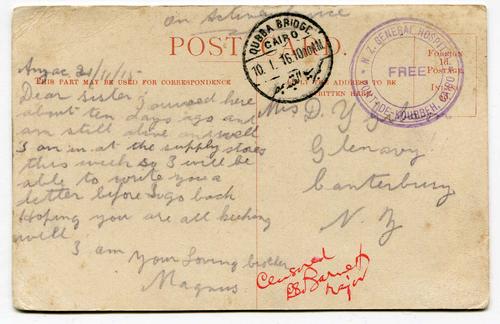 On Active Service
POST CARD.
QUBBA BRIDGE
CAIRO
10. I. 16. 10 00AM
N.Z. GENERAL HOSPITAL
FREE
Foreign
1d.
Postage
Inland
THIS PART MAY BE USED FOR CORRESPONDENCE
ADDRESS TO BE
WRITTEN HERE
Anzac
Dear Sister
I arrived here
about ten days ago and
am still alive and well
I am in at the supply stores
this week so I will be
able to write you a
letter before I go back
Hoping you are all keeping
well
I am
Your Loving brother
Magnus
Miss D. Y.
Glenavy
Canterbury
N. Z
Censored
Barnett
Major